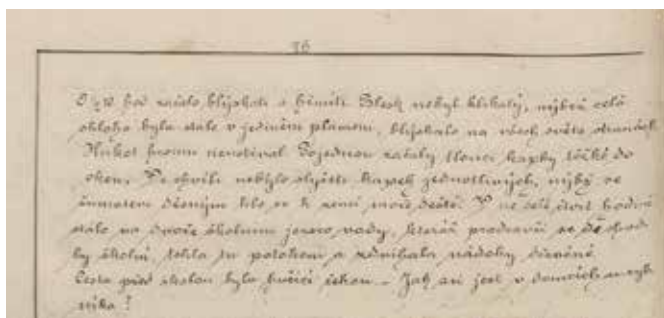 36
hod začalo blýskati a hřímíti Blesk nebyl klikatý, nýbrž celá
obloha byla stále v jediném plameni, blýskalo na všech světa stranách
Hukot hromu neustával Pojednou začaly tlouci kapky těžké do
oken. Po chvíli nebylo slyšeti kapek jednotlivých, nýbrž se
šumotem děsným lilo se k zemi moře deště. V necelé čtvrt hodině
stálo na dvoře školním jezero vody, které prodravši se
by školní, teklo tu potokem a zdvihalo nádoby dřevěné
Cesta před školou byla hučící řekou. Jak asi jest v domcích u ryb
níka?